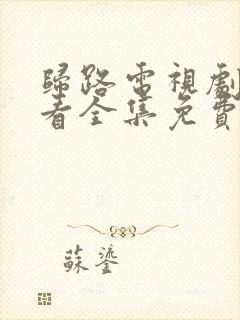 歸路電視劇
看全集免費
蘇鎏